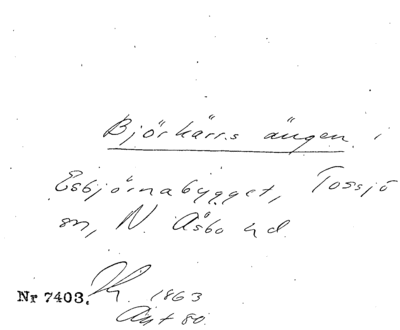 Björkärrs ängen i
Esbjörnabygget, Tossjö
sn, N. Åsbo hd
Nr 7403. 1863
Änt 80